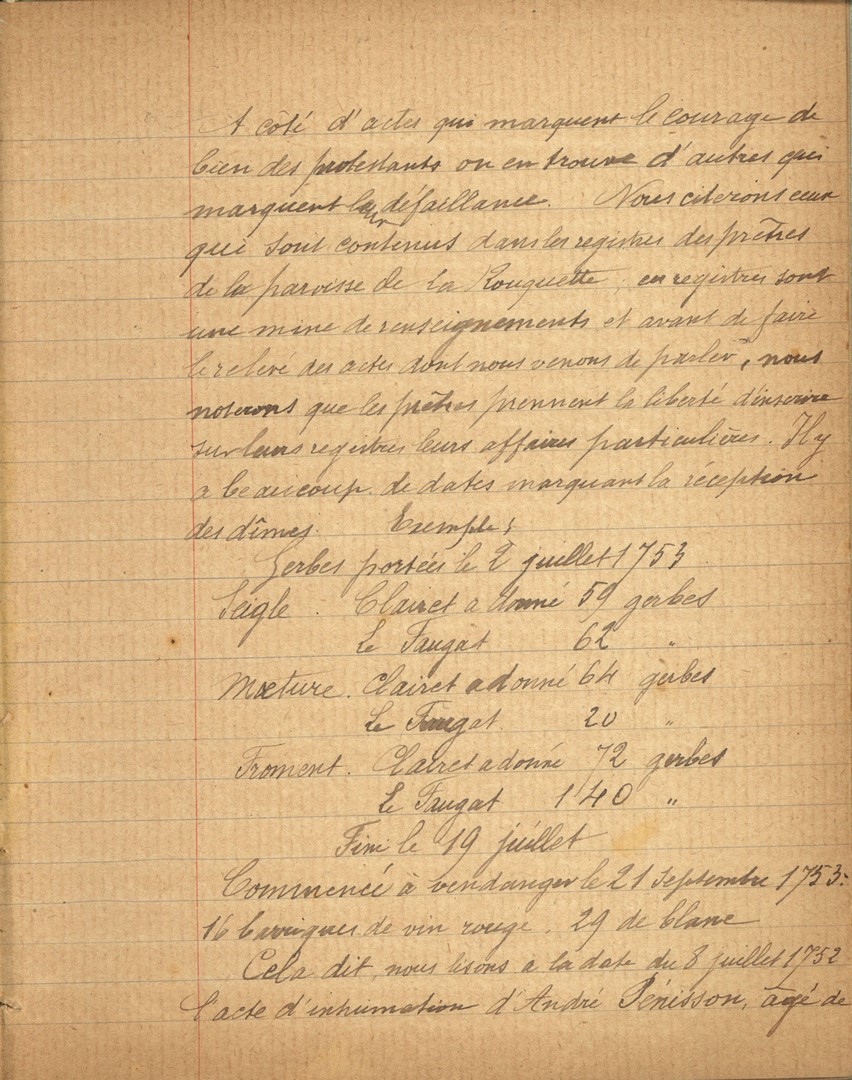 A côté d'actes qui marquent le courage de
bien des protestants on en trouve d'autres qui
marquent leur défaillance. Nous citerons ceux
qui sont contenus dans les registres des prêtres
de la paroisse de La Rouquette, ces registres sont
une mine de renseignements et avant de faire
le relevé des actes dont nous venons de parler, nous
noterons que les prêtres prennent la liberté d'inscrire
sur leurs registres leurs affaires particulières. Il y
a beaucoup de dates marquant la réception
des dîmes. Exemple :
Gerbes portées le 2 juillet 1753
Seigle. Clairet a donné 59 gerbes
Le Faugat 62 "
Mæture. Clairet a donné 64 gerbes
Le Faugat 20 "
Froment. Clairet a donné 72 gerbes
Le Faugat 140 "
Fini le 19 juillet
Commencé à vendanger le 21 Septembre 1753:
16 barriques de vin rouge. 29 de blanc
Cela dit, nous lisons à la date du 8 juillet 1752
l'acte d'inhumation d'André Pénisson, âgé de